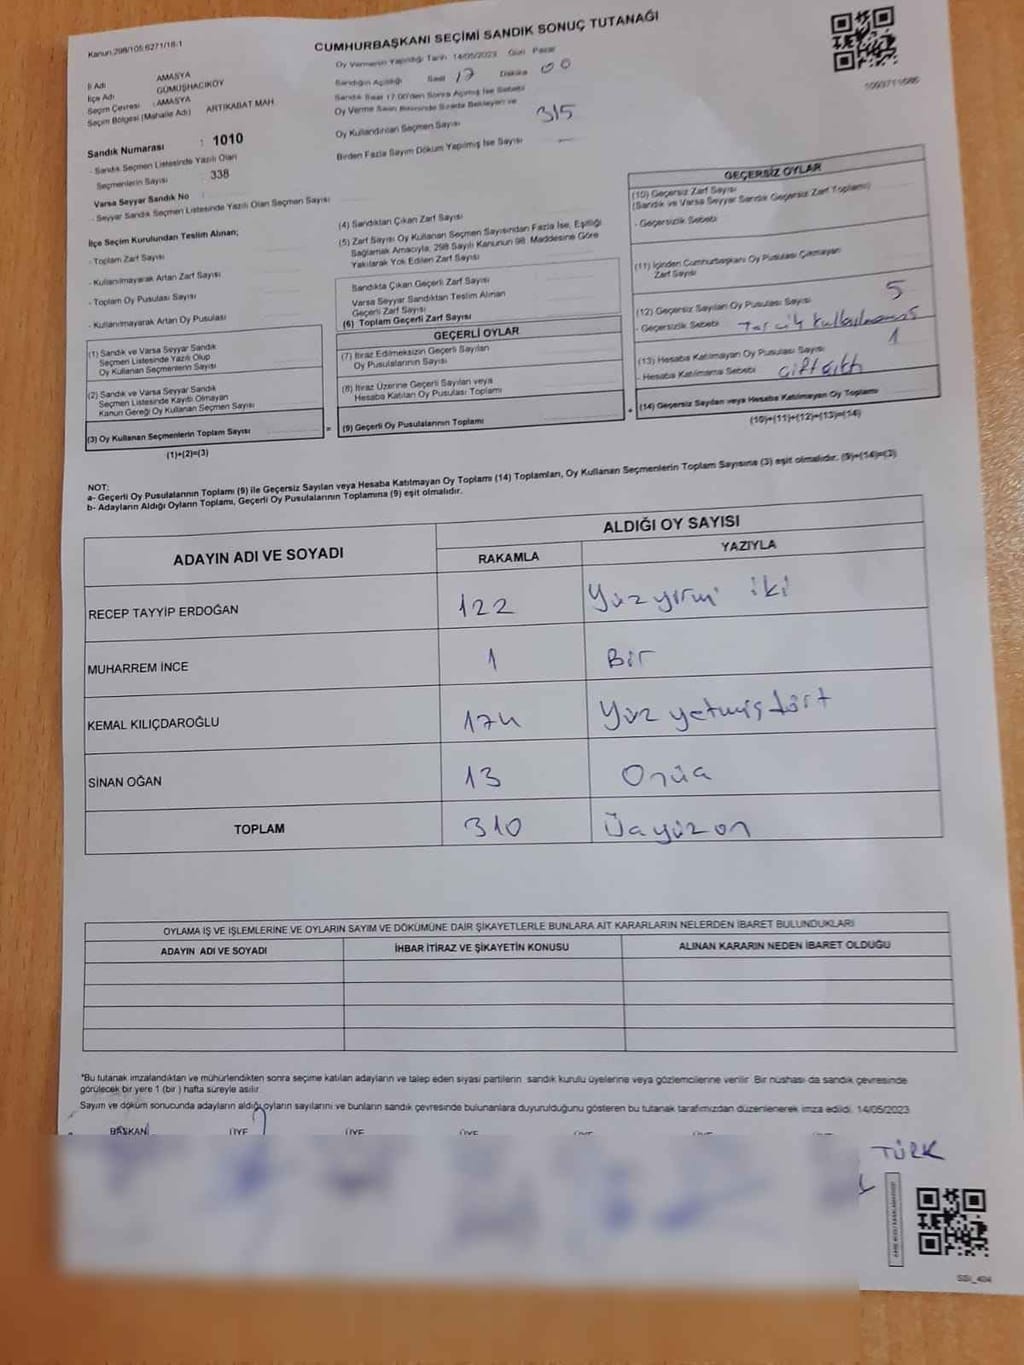 Kanun:298/105;6271/18-1
CUMHURBAŞKANI SEÇİMİ SANDIK SONUÇ TUTANAĞI
Oy Vermenin Yapıldığı Tarih 14/05/2023 Gün Pazar
İl Adı AMASYA
İlçe Adı GÜMÜŞHACIKÖY
Seçim Çevresi : AMASYA
Seçim Bölgesi (Mahalle Adı) ARTIKABAT MAH.
Sandığın Açıldığı Saat 17 Dakika 00
Sandık Saat 17:00'den Sonra Açılmış İse Sebebi
Oy Verme Saati Bitiminde Sırada Bekleyen ve
Oy Kullandırılan Seçmen Sayısı 315
Birden Fazla Sayım Döküm Yapılmış İse Sayısı
Sandık Numarası : 1010
- Sandık Seçmen Listesinde Yazılı Olan
Seçmenlerin Sayısı : 338
Varsa Seyyar Sandık No
- Seyyar Sandık Seçmen Listesinde Yazılı Olan Seçmen Sayısı
İlçe Seçim Kurulundan Teslim Alınan;
- Toplam Zarf Sayısı
- Kullanılmayarak Artan Zarf Sayısı
- Toplam Oy Pusulası Sayısı
- Kullanılmayarak Artan Oy Pusulası
(1) Sandık ve Varsa Seyyar Sandık
Seçmen Listesinde Yazılı Olup
Oy Kullanan Seçmenlerin Sayısı
(2) Sandık ve Varsa Seyyar Sandık
Seçmen Listesinde Kayıtlı Olmayan
Kanun Gereği Oy Kullanan Seçmen Sayısı
(3) Oy Kullanan Seçmenlerin Toplam Sayısı
(1)+(2)=(3)
(4) Sandıktan Çıkan Zarf Sayısı
(5) Zarf Sayısı Oy Kullanan Seçmen Sayısından Fazla İse, Eşitliği
Sağlamak Amacıyla, 298 Sayılı Kanunun 98. Maddesine Göre
Yakılarak Yok Edilen Zarf Sayısı
Sandıkta Çıkan Geçerli Zarf Sayısı
Varsa Seyyar Sandıktan Teslim Alınan
Geçerli Zarf Sayısı
(6) Toplam Geçerli Zarf Sayısı
GEÇERLİ OYLAR
(7) İtiraz Edilmeksizin Geçerli Sayılan
Oy Pusulalarının Sayısı
(8) İtiraz Üzerine Geçerli Sayılan veya
Hesaba Katılan Oy Pusulası Toplamı
= (9) Geçerli Oy Pusulalarının Toplamı +
GEÇERSİZ OYLAR
(10) Geçersiz Zarf Sayısı
(Sandık ve Varsa Seyyar Sandık Geçersiz Zarf Toplamı)
- Geçersizlik Sebebi
(11) İçinden Cumhurbaşkanı Oy Pusulası Çıkmayan
Zarf Sayısı
(12) Geçersiz Sayılan Oy Pusulası Sayısı 5
- Geçersizlik Sebebi Tercih kullanılmamış
(13) Hesaba Katılmayan Oy Pusulası Sayısı 1
- Hesaba Katılmama Sebebi Çift çıktı
(14) Geçersiz Sayılan veya Hesaba Katılmayan Oy Toplamı
(10)+(11)+(12)+(13)=(14)
NOT:
a- Geçerli Oy Pusulalarının Toplamı (9) ile Geçersiz Sayılan veya Hesaba Katılmayan Oy Toplamı (14) Toplamları, Oy Kullanan Seçmenlerin Toplam Sayısına (3) eşit olmalıdır. (9)+(14)=(3)
b- Adayların Aldığı Oyların Toplamı, Geçerli Oy Pusulalarının Toplamına (9) eşit olmalıdır.
ADAYIN ADI VE SOYADI
ALDIĞI OY SAYISI
RAKAMLA YAZIYLA
RECEP TAYYİP ERDOĞAN 122 Yüz yirmi iki
MUHARREM İNCE 1 Bir
KEMAL KILIÇDAROĞLU 174 Yüz yetmiş dört
SİNAN OĞAN 13 Onüç
TOPLAM 310 Üçyüz on
OYLAMA İŞ VE İŞLEMLERİNE VE OYLARIN SAYIM VE DÖKÜMÜNE DAİR ŞİKAYETLERLE BUNLARA AİT KARARLARIN NELERDEN İBARET BULUNDUKLARI
ADAYIN ADI VE SOYADI İHBAR İTİRAZ VE ŞİKAYETİN KONUSU ALINAN KARARIN NEDEN İBARET OLDUĞU
*Bu tutanak imzalandıktan ve mühürlendikten sonra seçime katılan adayların ve talep eden siyasi partilerin sandık kurulu üyelerine veya gözlemcilerine verilir. Bir nüshası da sandık çevresinde
görülecek bir yere 1 (bir ) hafta süreyle asılır.
Sayım ve döküm sonucunda adayların aldığı oyların sayılarını ve bunların sandık çevresinde bulunanlara duyurulduğunu gösteren bu tutanak tarafımızdan düzenlenerek imza edildi. 14/05/2023
BAŞKAN ÜYE ÜYE ÜYE
TÜRK